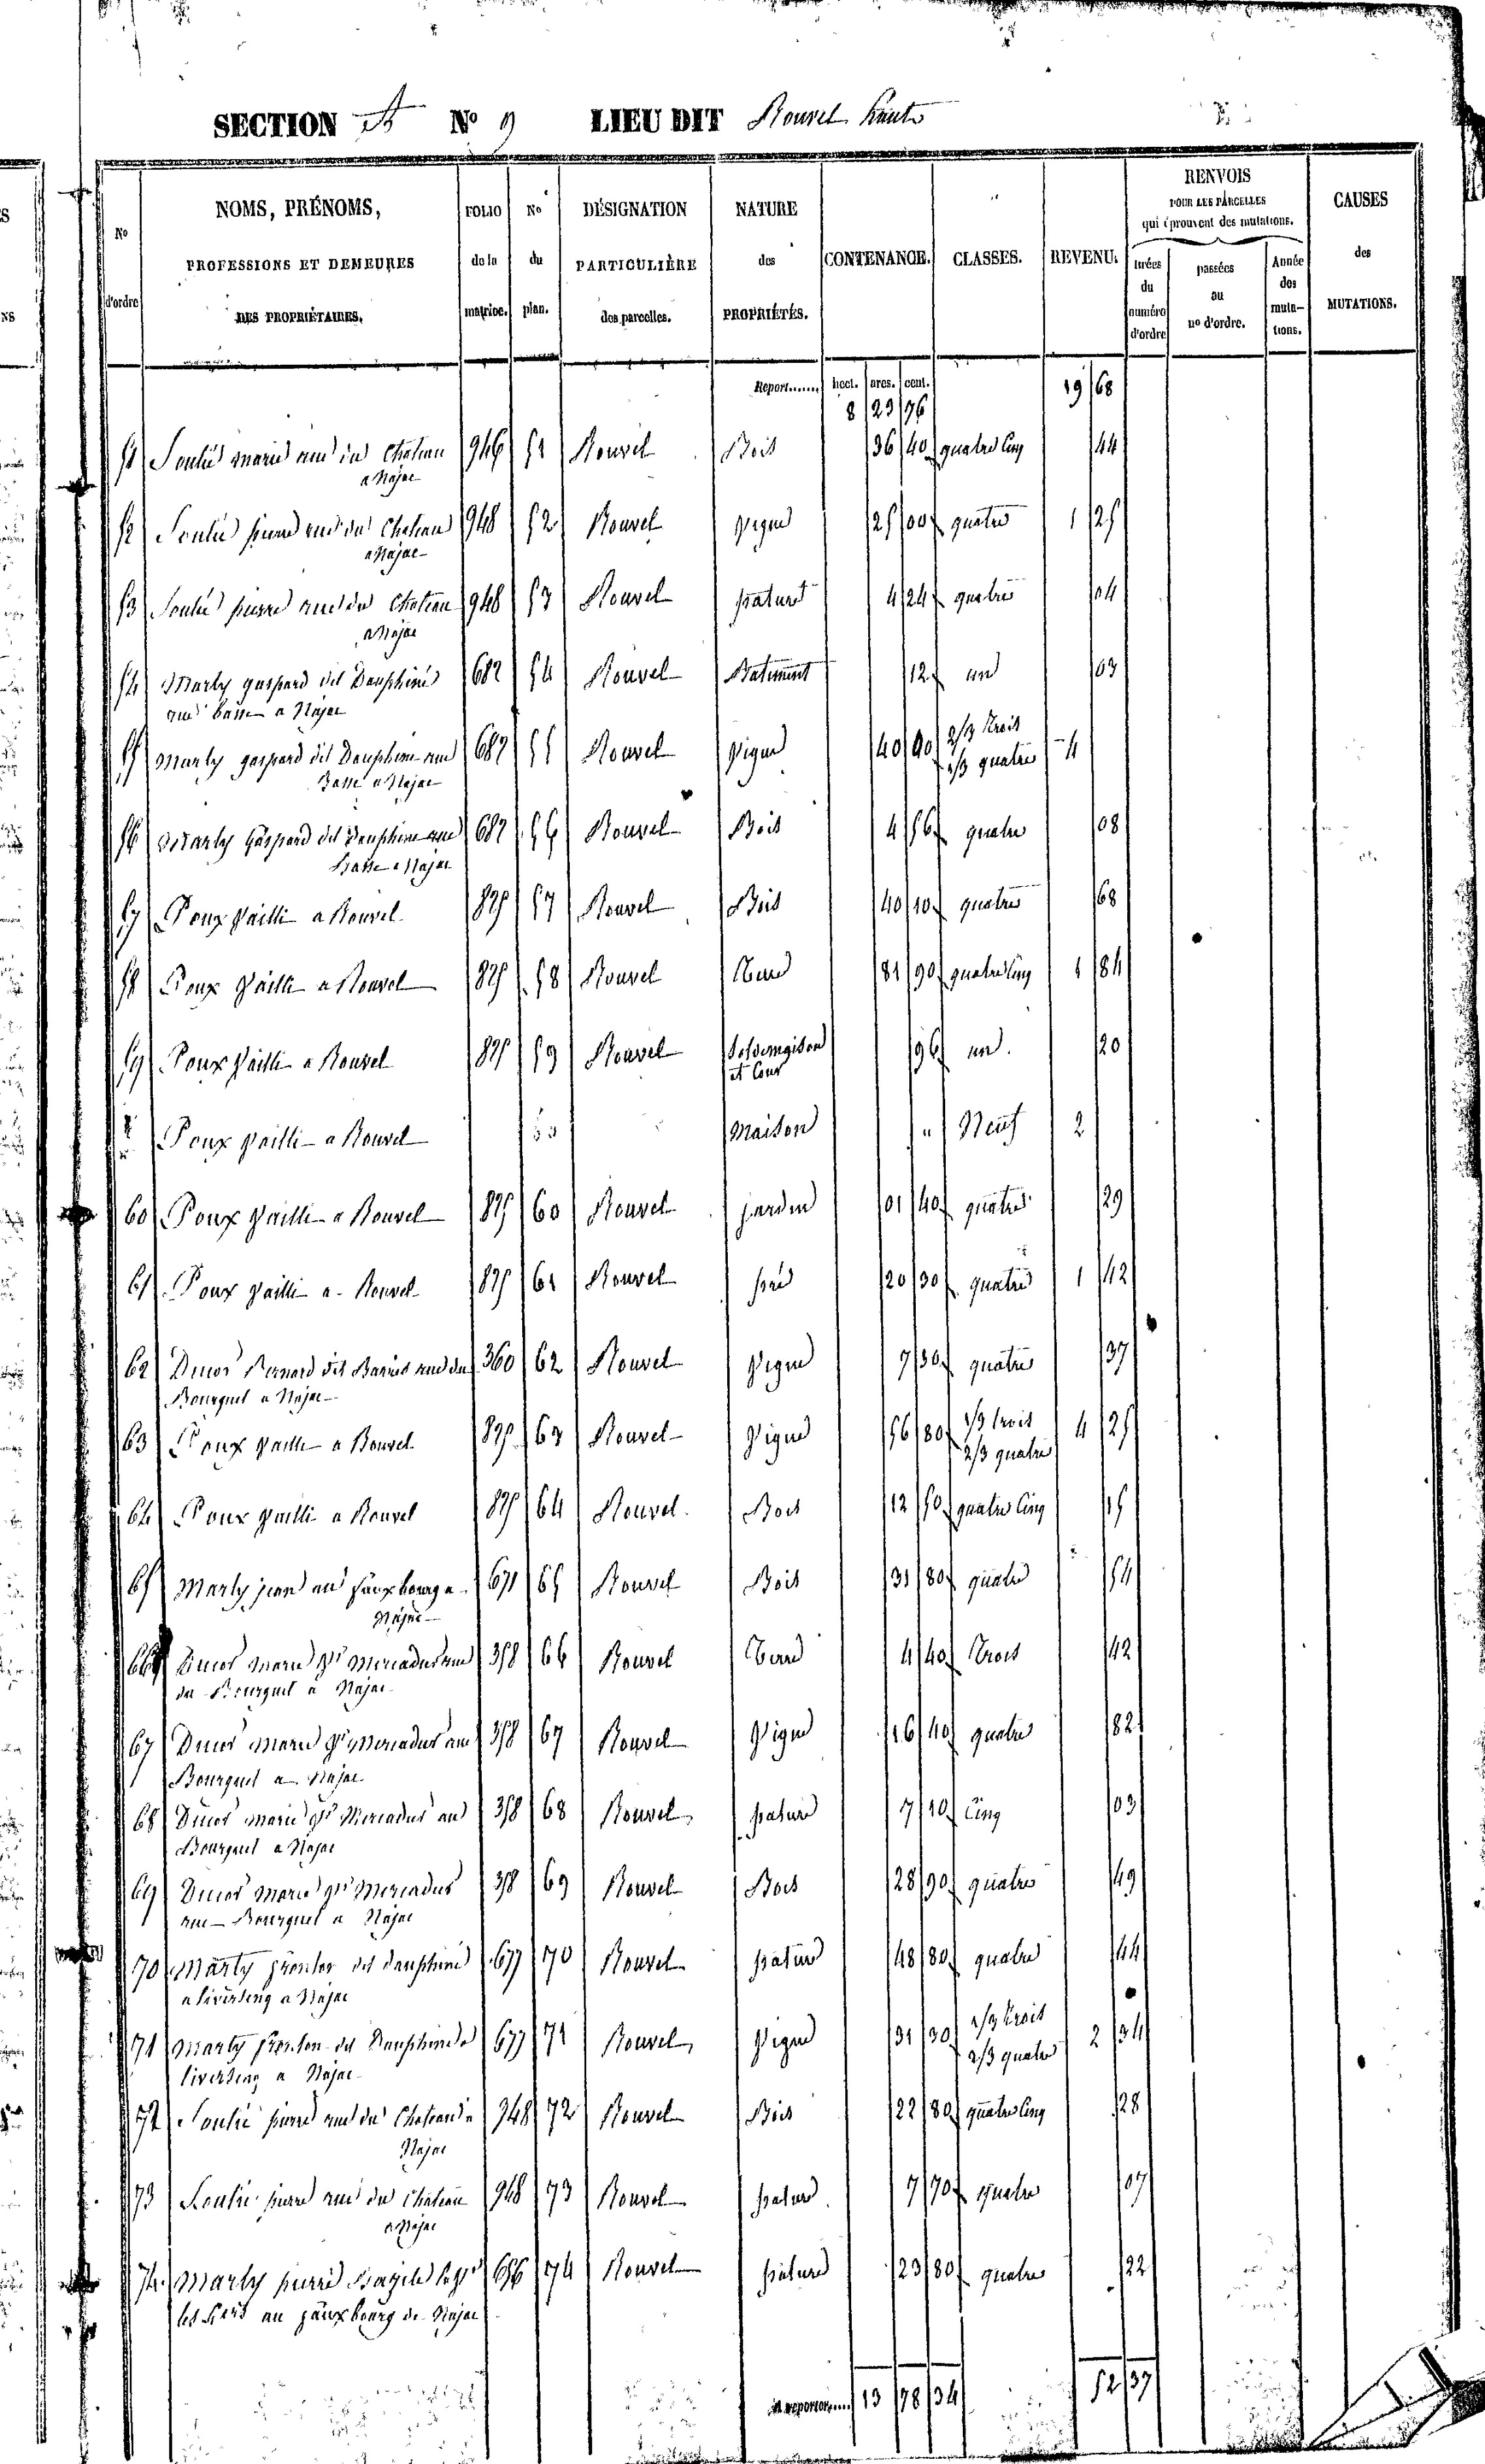 SECTION A No 9 LIEU DIT Rouvel haut
No d'ordre
NOMS, PRÉNOMS, PROFESSIONS ET DEMEURES DES PROPRIÉTAIRES.
FOLIO de la matrice.
No du plan.
DÉSIGNATION PARTICULIÈRE des parcelles.
NATURE des PROPRIÉTÉS.
CONTENANCE.
CLASSES.
REVENU.
RENVOIS POUR LES PARCELLES qui éprouvent des mutations.
tirées du numéro d'ordre
passées au no d'ordre.
Année des mutations.
CAUSES des MUTATIONS.
Report....... hect. ares. cent. 19 68
8 23 76
51 Soulié marie rue du Chateau 946 51 Rouvel Bois 36 40 quatre cinq 44
a Najac
52 Soulié pierre rue du Chateau 948 52 Rouvel Vigne 25 00 quatre 1 25
a Najac
53 Soulié pierre rue du Chateau 948 53 Rouvel pature 4 24 quatre 04
a Najac
54 Marty gaspard dit Dauphiné 682 54 Rouvel Batiment 12 un 03
rue basse a Najac
55 Marty gaspard dit Dauphiné rue 682 55 Rouvel Vigne 40 00 2/3 trois 4
Basse a Najac 1/3 quatre
56 Marty Gaspard dit Dauphiné rue 682 56 Rouvel Bois 4 56 quatre 08
Basse a Najac
57 Poux Vailli a Rouvel 825 57 Rouvel Bois 40 10 quatre 68
58 Poux Vailli a Rouvel 825 58 Rouvel Terre 81 90 quatre cinq 1 84
59 Poux Vailli a Rouvel 825 59 Rouvel Sol de maison 96 un 20
et Cour
Poux Vailli a Rouvel Maison " Neuf 2
60 Poux Vailli a Rouvel 825 60 Rouvel jardin 01 40 quatre 29
61 Poux Vailli a Rouvel 825 61 Rouvel pré 20 30 quatre 1 42
62 Ducos Bernard dit rue du 360 62 Rouvel Vigne 7 30 quatre 37
Bourguet a Najac
63 Poux Vailli a Rouvel 825 63 Rouvel Vigne 56 80 1/3 trois 4 25
2/3 quatre
64 Poux Vailli a Rouvel 825 64 Rouvel Bois 12 50 quatre cinq 15
65 Marty jean au fauxbourg a 671 65 Rouvel Bois 31 80 quatre 54
Najac
66 Ducos marie rue 358 66 Rouvel Terre 4 40 trois 42
du Bourguet a Najac
67 Ducos marie rue 358 67 Rouvel Vigne 16 40 quatre 82
Bourguet a Najac
68 Ducos marie 358 68 Rouvel pature 7 10 cinq 03
Bourguet a Najac
69 Ducos marie 358 69 Rouvel Bois 28 90 quatre 49
rue Bourguet a Najac
70 Marty dit dauphiné 677 70 Rouvel pature 48 80 quatre 44
a Najac
71 Marty dit Dauphiné 677 71 Rouvel Vigne 31 30 1/3 trois 2 34
a Najac 2/3 quatre
72 Soulié pierre rue du Chateau a 948 72 Rouvel Bois 22 80 quatre cinq 28
Najac
73 Soulié pierre rue du Chateau 948 73 Rouvel pature 7 70 quatre 07
a Najac
74 Marty pierre 696 74 Rouvel pature 23 80 quatre 22
au fauxbourg de Najac
A reporter..... 13 78 34 52 37